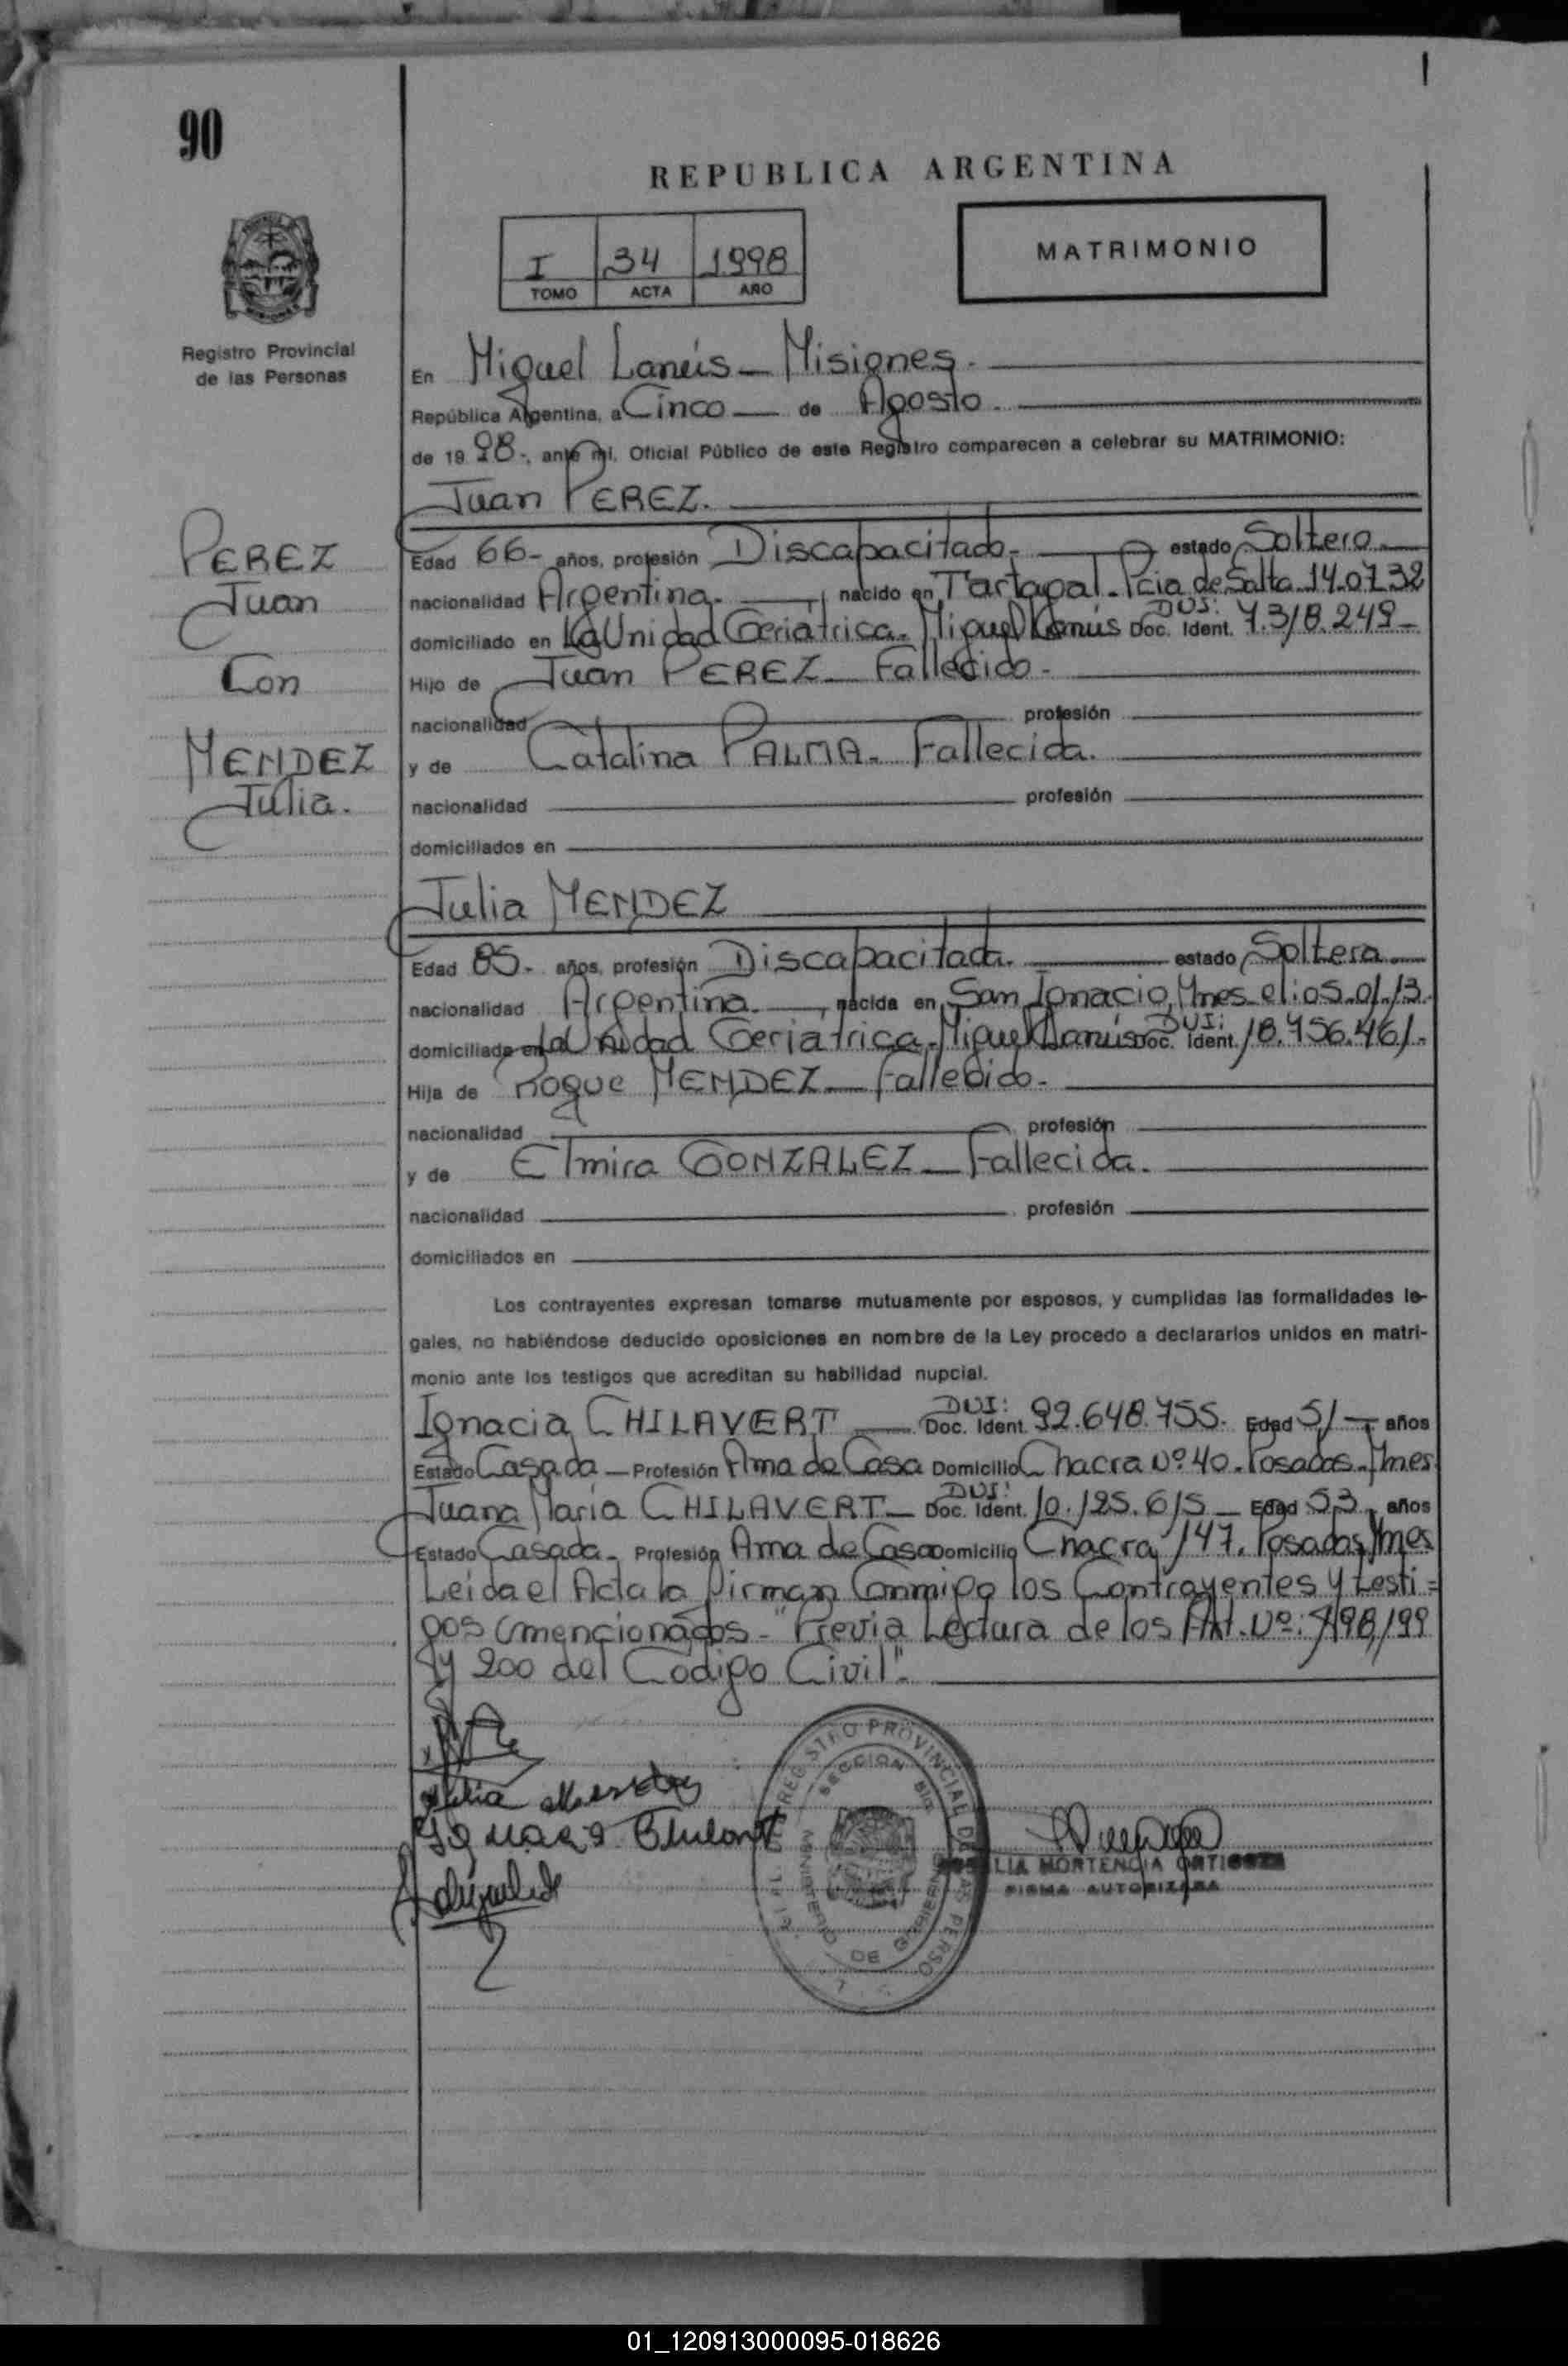 90
REPUBLICA ARGENTINA
I 34 1998
TOMO ACTA AÑO
MATRIMONIO
Registro Provincial
de las Personas
En Miguel Lanús - Misiones.
República Argentina, a Cinco de Agosto.
de 19 98-, ante mi, Oficial Público de este Registro comparecen a celebrar su MATRIMONIO:
Juan PEREZ.
PEREZ
Juan
Con
MENDEZ
Julia.
Edad 66- años, profesión Discapacitado- estado Soltero.
nacionalidad Argentina. nacido en Tartagal. Pcia de Salta 14.07.32
domiciliado en La Unidad Geriátrica. Miguel Lanús Doc. Ident. DUI: 7.318.249-
Hijo de Juan PEREZ - Fallecido-
nacionalidad profesión
y de Catalina PALMA- Fallecida.
nacionalidad profesión
domiciliados en
Julia MENDEZ
Edad 85- años, profesión Discapacitada. estado Soltera.
nacionalidad Argentina. nacida en San Ignacio, Mnes el: 05.01.13.
domiciliada en La Unidad Geriátrica. Miguel Lanús Doc. Ident. DUI: 18.756.461.
Hija de Roque MENDEZ - Fallecido-
nacionalidad profesión
y de Elmira GONZALEZ - Fallecida.
nacionalidad profesión
domiciliados en
Los contrayentes expresan tomarse mutuamente por esposos, y cumplidas las formalidades le-
gales, no habiéndose deducido oposiciones en nombre de la Ley procedo a declararlos unidos en matri-
monio ante los testigos que acreditan su habilidad nupcial.
Ignacia CHILAVERT - Doc. Ident. DUI: 92.648.755. Edad 51 - años
Estado Casada - Profesión Ama de Casa Domicilio Chacra Nº 40. Posadas. Mnes.
Juana María CHILAVERT - Doc. Ident. DUI: 10.125.615 - Edad 53 - años
Estado Casada - Profesión Ama de Casa Domicilio Chacra 147. Posadas, Mnes
Leida el Acta la firman Conmigo los Contrayentes y testi=
gos mencionados- "Previa Lectura de los Art. Nº: 198,199
y 200 del Codigo Civil".
Julia Mendez
REGISTRO PROVINCIAL DE LAS PERSO
SECCION
MINISTERIO DE GOBIERNO
LIA HORTENCIA ORTIGOZA
FIRMA AUTORIZADA
01_120913000095-018626